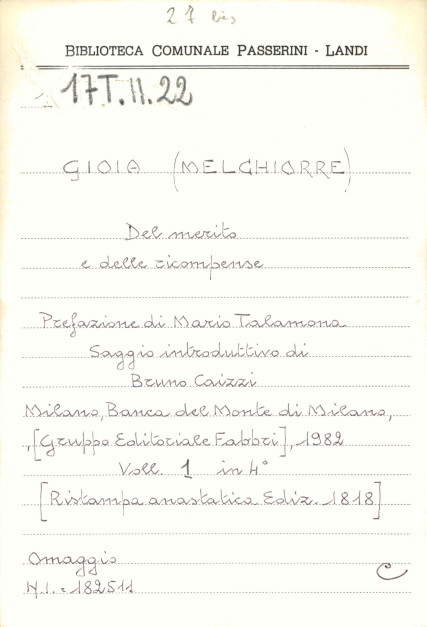 27 bis
BIBLIOTECA COMUNALE PASSERINI - LANDI
17T.II.22
GIOIA (MELCHIORRE)
Del merito
e delle ricompense
Prefazione di Mario Talamona
Saggio introduttivo di
Bruno Caizzi
Milano, Banca del Monte di Milano,
,[Gruppo Editoriale Fabbri], 1982
Voll. 1 in 4°
[Ristampa anastatica Ediz. 1818]
Omaggio
N.I. = 182511
C